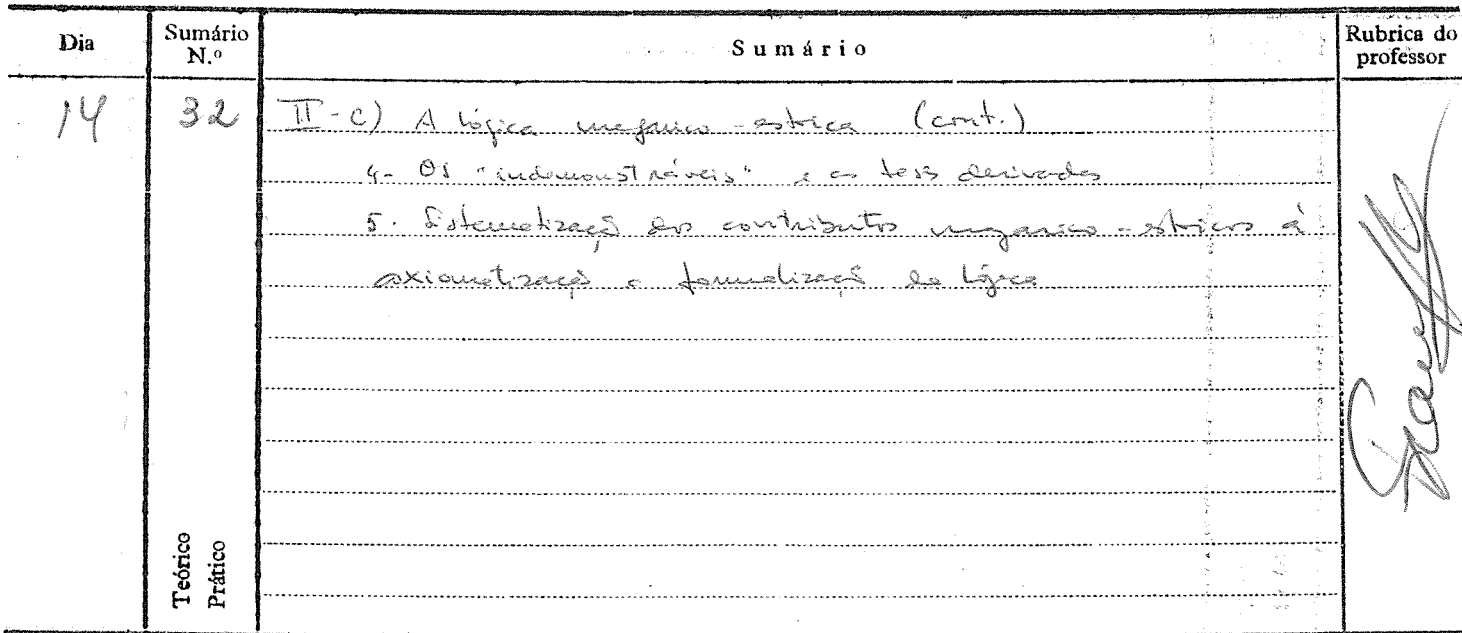 Dia
Sumário N.º
Sumário
Rubrica do professor
14
32
II - c) A lógica megárico-estóica (cont.)
4- Os "indemonstráveis" e as teses derivadas
5. Sistematização dos contributos megárico-estóicos à
axiomatização e formalização da lógica
Teórico
Prático